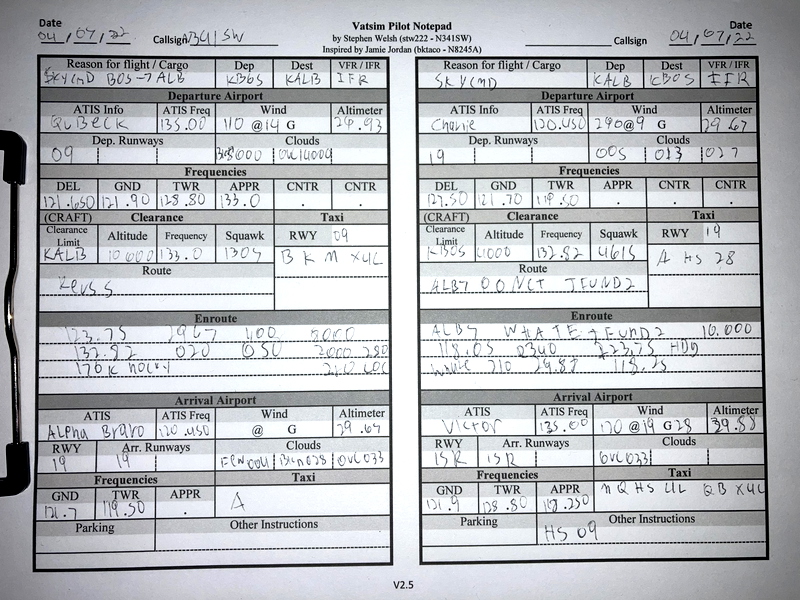 Date
04/07/22
Callsign
Vatsim Pilot Notepad
by Stephen Welsh (stw222 - N341SW)
Inspired by Jamie Jordan (bktaco - N8245A)
Callsign
Date
04/07/22
Reason for flight / Cargo Dep Dest VFR / IFR
SKYCMD BOS→ALB KBOS KALB IFR
Departure Airport
ATIS Info ATIS Freq Wind Altimeter
QuBeck 135.00 110 @14 G 29.93
Dep. Runways Clouds
09
Frequencies
DEL GND TWR APPR CNTR CNTR
121.650 121.90 128.80 133.0 . .
(CRAFT) Clearance Taxi
Clearance Limit Altitude Frequency Squawk RWY 09
KALB 10000 133.0 1305 B K M X4L
Route
Enroute
123.75
132.92 020 050 2000 280
Arrival Airport
ATIS ATIS Freq Wind Altimeter
Alpha Bravo 120.450 @ G 29.67
RWY Arr. Runways Clouds
19 19 Few004 Bkn028 Ovc033
Frequencies Taxi
GND TWR APPR A
121.7 119.50 .
Parking Other Instructions
Reason for flight / Cargo Dep Dest VFR / IFR
SKYCMD KALB KBOS IFR
Departure Airport
ATIS Info ATIS Freq Wind Altimeter
Charlie 120.450 290@9 G 29.67
Dep. Runways Clouds
19 005 013 027
Frequencies
DEL GND TWR APPR CNTR CNTR
127.50 121.70 119.50 . . .
(CRAFT) Clearance Taxi
Clearance Limit Altitude Frequency Squawk RWY 19
KBOS 4000 132.82 4615 A HS 28
Route
ALB7 JFUND2
Enroute
ALB7 JFUND2 10.000
118.05
210 29.87
Arrival Airport
ATIS ATIS Freq Wind Altimeter
Victor 135.00 120 @19 G 28 29.88
RWY Arr. Runways Clouds
15R 15R OVC033
Frequencies Taxi
GND TWR APPR N Q HS 4L Q B X4L
121.9 128.80 118.250
Parking Other Instructions
HS 09
V2.5